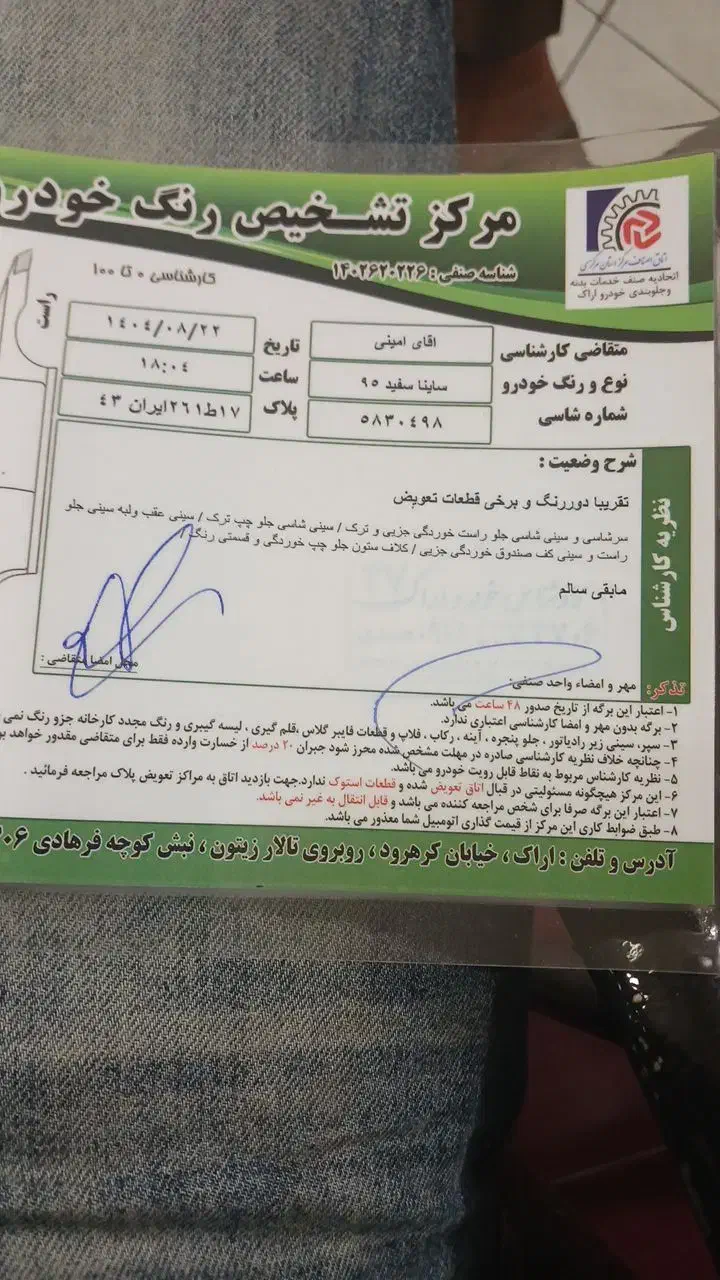 مرکز تشخیص رنگ خودرو
شناسه صنفی : ۱۴۰۲۶۲۰۲۲۶
کارشناسی ۰ تا ۱۰۰
اتاق اصناف مرکز استان مرکزی
اتحادیه صنف خدمات بدنه
و جلوبندی خودرو اراک
راست
متقاضی کارشناسی اقای امینی تاریخ ۱۴۰۴/۰۸/۲۲
نوع و رنگ خودرو ساینا سفید ۹۵ ساعت ۱۸:۰۴
شماره شاسی ۵۸۳۰۴۹۸ پلاک ۱۷ط۲۶۱ایران ۴۳
نظریه کارشناس
شرح وضعیت :
تقریبا دوررنگ و برخی قطعات تعویض
سرشاسی و سینی شاسی جلو راست خوردگی جزیی و ترک / سینی شاسی جلو چپ ترک / سینی عقب ولبه سینی جلو
راست و سینی کف صندوق خوردگی جزیی / کلاف ستون جلو چپ خوردگی و قسمتی رنگ /
مابقی سالم
مهر و امضاء واحد صنفی: محل امضا متقاضی :
تذکر:
۱- اعتبار این برگه از تاریخ صدور ۴۸ ساعت می باشد.
۲- برگه بدون مهر و امضا کارشناسی اعتباری ندارد.
۳- سپر، سینی زیر رادیاتور ، جلو پنجره ، آینه ، رکاب ، فلاپ و قطعات فایبر گلاس ،قلم گیری ، لیسه گیری و رنگ مجدد کارخانه جزو رنگ نمی
۴- چنانچه خلاف نظریه کارشناسی صادره در مهلت مشخص شده محرز شود جبران ۲۰ درصد از خسارت وارده فقط برای متقاضی مقدور خواهد
۵- نظریه کارشناس مربوط به نقاط قابل رویت خودرو می باشد.
۶- این مرکز هیچگونه مسئولیتی در قبال اتاق تعویض شده و قطعات استوک ندارد.جهت بازدید اتاق به مراکز تعویض پلاک مراجعه فرمائید .
۷- اعتبار این برگه صرفا برای شخص مراجعه کننده می باشد و قابل انتقال به غیر نمی باشد.
۸- طبق ضوابط کاری این مرکز از قیمت گذاری اتومبیل شما معذور می باشد.
آدرس و تلفن : اراک ، خیابان کرهرود ، روبروی تالار زیتون ، نبش کوچه فرهادی